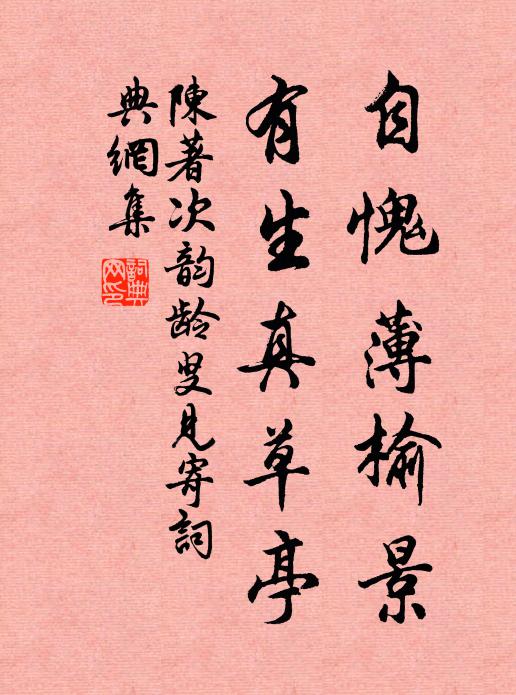 自愧薄榆景
有生真草亭
陳著次韵龄叟見寄詞
典網集
詞典
网印